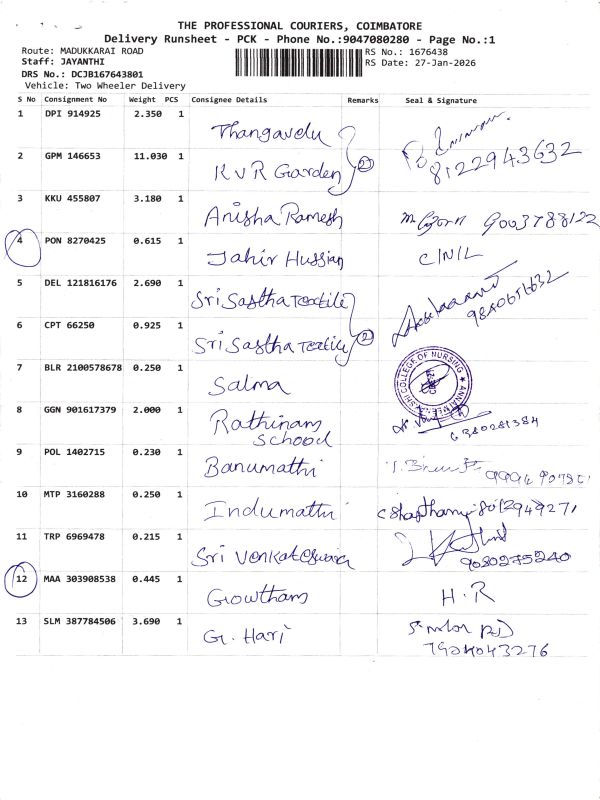 THE PROFESSIONAL COURIERS, COIMBATORE
Delivery Runsheet - PCK - Phone No.:9047080280 - Page No.:1
Route: MADUKKARAI ROAD RS No.: 1676438
Staff: JAYANTHI RS Date: 27-Jan-2026
DRS No.: DCJB167643801
Vehicle: Two Wheeler Delivery
S No Consignment No Weight PCS Consignee Details Remarks Seal & Signature
1 DPI 914925 2.350 1 Thangavelu
2 GPM 146653 11.030 1 KVR Garden 2 8122943632
3 KKU 455807 3.180 1 Anisha Ramesh 9003788122
4 PON 8270425 0.615 1 Jahir Hussian C/N/L
5 DEL 121816176 2.690 1 Sri Sastha Textile
6 CPT 66250 0.925 1 Sri Sastha Textile 2
7 BLR 2100578678 0.250 1 Salma COLLEGE OF NURSING
8 GGN 901617379 2.000 1 Rathinam
School 6380281384
9 POL 1402715 0.230 1 Banumathi
10 MTP 3160288 0.250 1 Indumathi 8012949271
11 TRP 6969478 0.215 1 Sri Venkateswara 9080275240
12 MAA 303908538 0.445 1 Gowtham H.R
13 SLM 387784506 3.690 1 G. Hari
7904043276